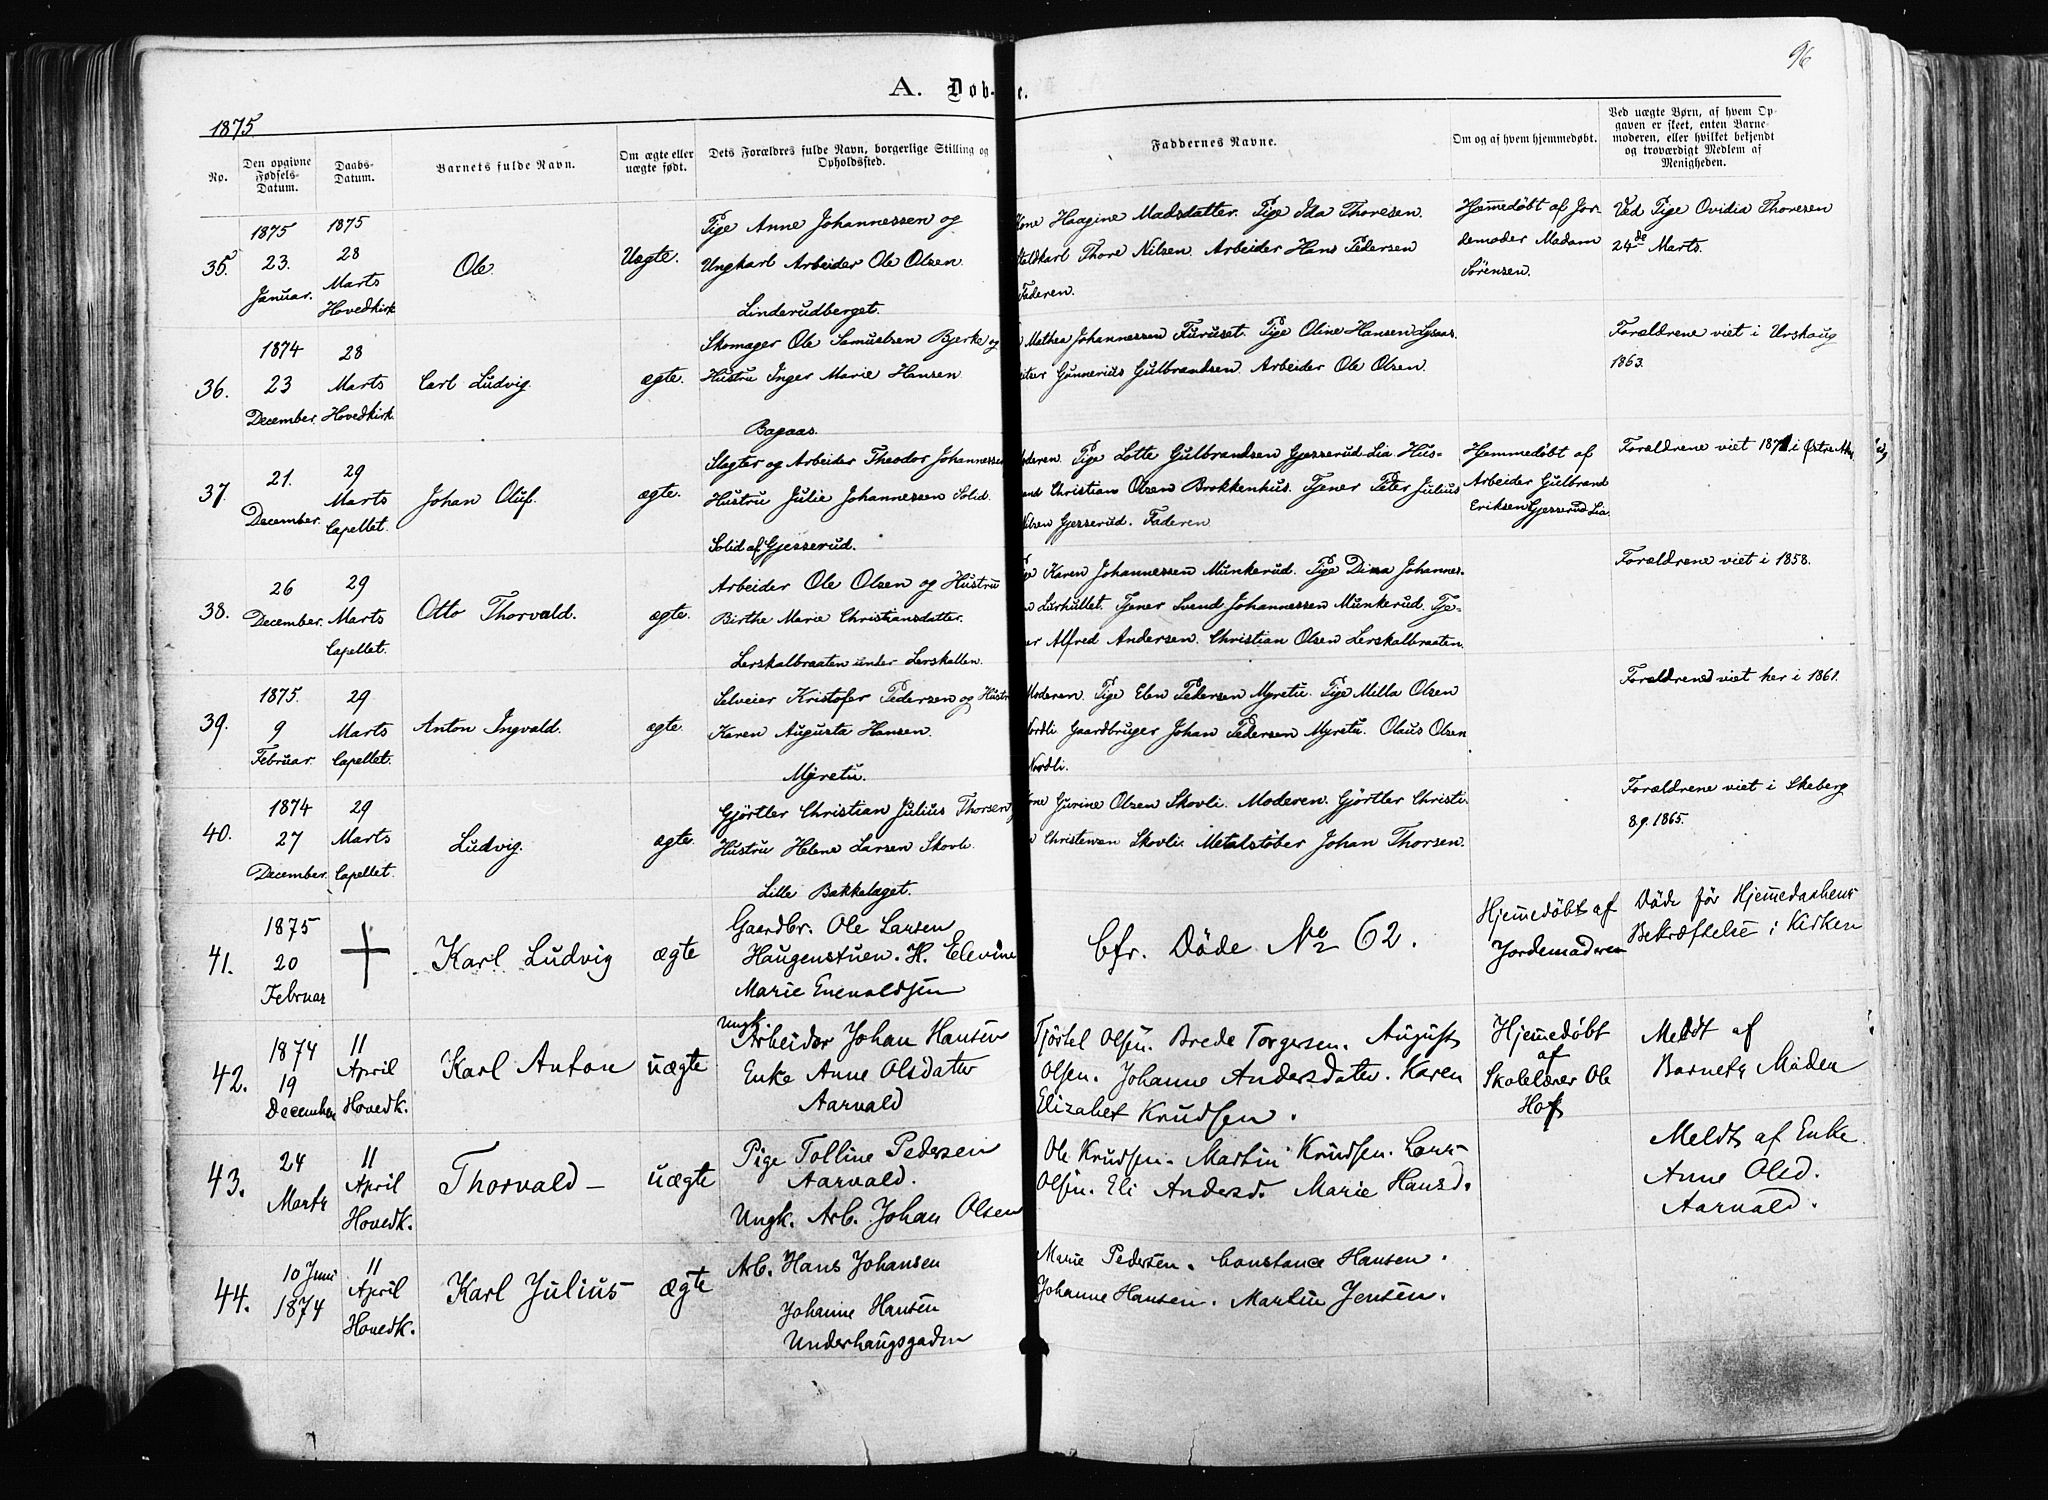 96
A. Døb-  e.
1875
No.
Den opgivne
Fødsels-
Datum.
Daabs-
Datum.
Barnets fulde Navn.
Om ægte eller
uægte født.
Dets Forældres fulde Navn, borgerlige Stilling og
Opholdssted.
Faddernes Navne.
Om og af hvem hjemmedøbt.
Ved uægte Børn, af hvem Op-
gaven er skeet, enten Barne-
moderen, eller hvilket bekjendt
og troværdigt Medlem af
Menigheden.
35.
1875
23.
Januar.
1875
28
Marts
Hovedkirk
Ole.
Uegte.
Pige Anne Johannessen og
Ungkarl Arbeider Ole Olsen.
Linderudberget.
Kone Haagine Madsdatter. Pige Ida Thoresen.
Staldkarl Thore Nilsen. Arbeider Hans Pedersen
Faderen.
Hjemmedøbt af Jor-
demoder Madam
Sørensen.
Ved Pige Ovidia Thoresen
24de Marts.
36.
1874
23
December.
28
Marts
Hovedkirk.
Carl Ludvig.
ægte.
Skomager Ole Samuelsen Bjerke og
Hustru Inger Marie Hansen
Bagaas.
Mathea Johannessen Furuset. Pige Oline Hansen
Gunnerius Gulbrandsen. Arbeider Ole Olsen.
Forældrene viet i Urskoug
1863.
37.
21.
December.
29
Marts
Capellet.
Johan Oluf.
ægte.
Slagter og Arbeider Theodor Johannessen
Hustru Julie Johannessen Solid.
Solid af Gjesserud.
Moderen. Pige Lotte Gulbrandsen Gjesserud Lia Hus-
mand Christian Olsen Brokkenhus. Tjener Peter Julius
Nilsen Gjesserud. Faderen
Hjemmedøbt af
Arbeider Gulbrand
Eriksen Gjesserud Lia.
Forældrene viet 1871 i Østre Aker
38.
26
December.
29
Marts
Capellet.
Otto Thorvald.
ægte.
Arbeider Ole Olsen og Hustru
Birthe Marie Christiansdatter.
Lerskalbraaten under Lerskallen.
Pige Karen Johannessen Munkerud. Pige Dina Johannes-
Lurhullet. Tjener Svend Johannessen Munkerud. Tje-
ner Alfred Andersen. Christian Olsen Lerskalbraaten.
Forældrene viet i 1858.
39.
1875.
9
Februar.
29
Marts
Capellet.
Anton Ingvald.
ægte.
Selveier Kristofer Pedersen og Hustru
Karen Augusta Hansen.
Myretu.
Moderen. Pige Elen Pedersen Myretu. Pige Milla Olsen
Nordli Gaardbruger Johan Pedersen Myretu. Olaus Olsen
Nordli.
Forældrene viet her i 1861.
40.
1874
27
December.
29
Marts
Capellet.
Ludvig.
ægte.
Gjørtler Christian Julius Thorsen
Hustru Helene Larsen Skovli.
Lille Bakkelaget.
Kone Gurine Olsen Skovli. Moderen. Gjørtler Christi-
Christensen Skovli. Metalstøber Johan Thorsen.
Forældrene viet i Skeberg
8.9. 1865.
41.
1875
20
Februar
Karl Ludvig
ægte
Gaardbr. Ole Larsen
Haugenstuen. H. Elevine
Marie Enevoldsen
Cfr. Døde No 62.
Hjemmedøbt af
Jordemoderen
Døde før Hjemmedaabens
Bekræftelse i Kirken
42.
1874
19
December
11
April
Hovedk.
Karl Anton
uægte
Ungk.
Arbeider Johan Hansen
Enke Anne Olsdatter
Aarvald
Olsen. Brede Torgersen. August
Olsen. Johanne Andersdatter. Karen
Elizabet Knudsen.
Hjemmedøbt
af
Skolelærer Ole
Hof
Meldt af
Barnets Moder
43.
24
Marts
11
April
Hovedk.
Thorvald –
uægte
Pige Tolline Pedersen
Aarvald.
Ungk. Arb. Johan Olsen
Ole Knudsen. Martin Knudsen. Lars
Olsen. Eli Andersd. Marie Hansd.
Meldt af Enke
Anne Olsd.
Aarvald.
44.
10 Juni
1874
11
April
Hovedk.
Karl Julius
ægte
Arb. Hans Johansen
Johanne Hansen
Underhaugsgaden
Marie Pedersen. Constance Hansen.
Johanne Hansen. Martin Jensen.